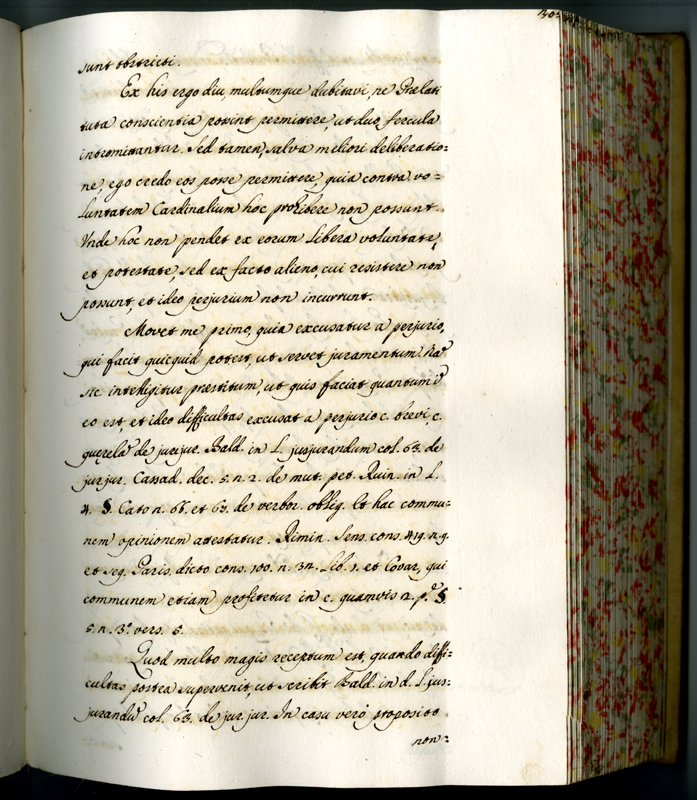 sunt obstricti.
Ex his ergo diu, multumque dubitavi, ne Prælati
tuta conscientia possint permittere, ut duo fercula
intromittantur. Sed tamen, salva meliori deliberatio=
ne, ego credo eos posse permittere, quia contra vo=
luntatem Cardinalium hoc prohibere non possunt.
Unde hoc non pendet ex eorum libera voluntate,
et potestate sed ex facto alieno, cui resistere non
possunt, et ideo perjurium non incurrunt.
Movet me primo, quia excusatur a perjurio,
qui facit quicquid potest, ut servet juramentum
sic intelligitur præstitum, ut quis faciat quantum i
eo est, et ideo difficultas excusat a perjurio c. brevi, c.
querela de jur jur. Bald. in L. jusjurandum col. 63. de
jur jur. Cassad. dec. 5. n. 2. de mut. pet. Ruin. in L.
4. §. Cato n. 66. et 63. de verbor. oblig. Et hac commu=
nem opinionem attestatur. Rimin. Sens. cons. 419. n. 9.
et seq. Paris. dicto cons. 100. n. 32. lib. 1. et Covar, qui
communem etiam profitetur in c. quamvis 2. p.ᵉ §.
5. n. 3.º vers. 5.
Quod multo magis receptum est, quando diffi=
cultas postea supervenit, ut scribit Bald. in d. L. jus=
jurandũ col. 63. de jur. jur. In casu vero proposito
non=